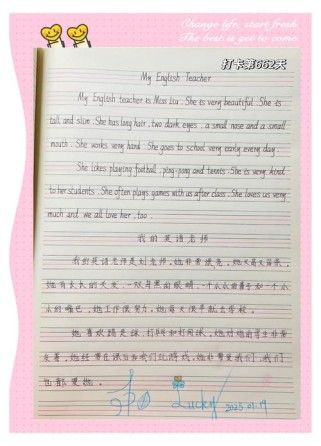 Change life, start fresh
The best is yet to come.
打卡第662天
My English Teacher
My English teacher is Miss Liu. She is very beautiful. She is
tall and slim. She has long hair, two dark eyes, a small nose and a small
mouth. She works very hard. She goes to school very early every day.
She likes playing football, ping-pong and tennis. She is very kind
to her students. She often plays games with us after class. She loves us very
much and we all love her, too.
我的英语老师
我的英语老师是刘老师,她非常漂亮,她又高又苗条,
她有长长的头发,一双黑黑的眼睛,一个小小的鼻子和一个小
小的嘴巴,她工作很努力,她每天很早就去学校。
她喜欢踢足球,打乒乓和打网球。她对她的学生非常
友善,她经常在课后和我们玩游戏,她非常爱我们,我们
也都爱她。
Lucky
2025.01.17